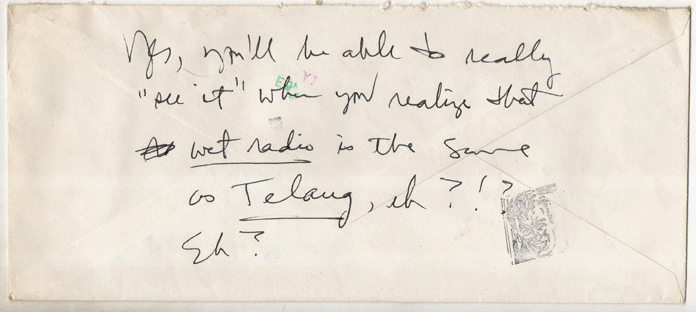 Yes, you'll be able to really
"see it" when you realize that
wet radio is the same
as Telang, eh?!?
Eh?